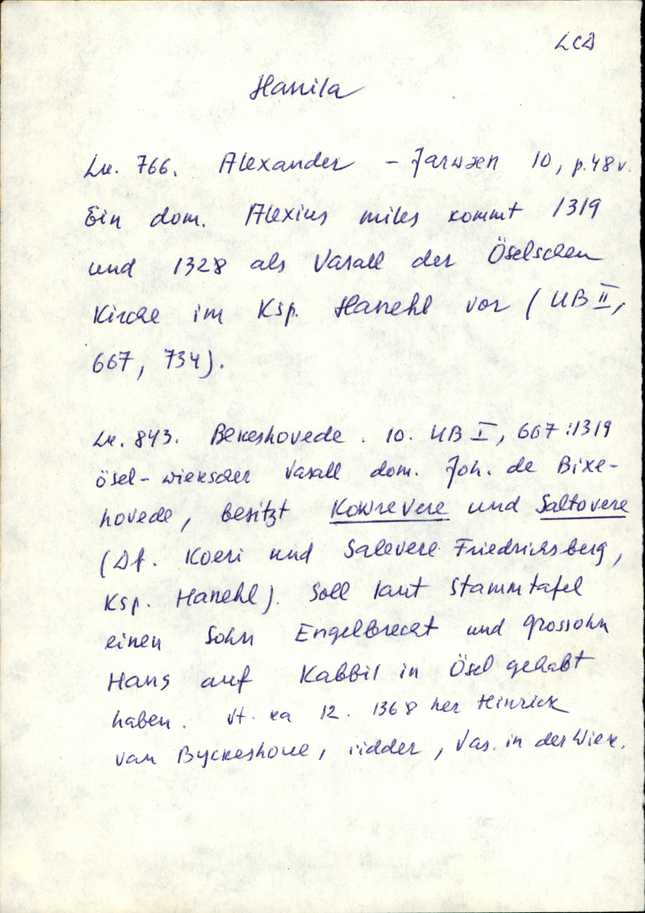 LCD
Hanila
Lk. 766. Alexander - Jarwsen 10, p. 48 v.
Ein dom. Alexius miles kommt 1319
und 1328 als Vasall der Öselschen
Kirche im Ksp. Hanehl vor (UB II,
667, 734).
Lk. 843. Bekeshovede. 10. UB I, 667: 1319
ösel-wiekscher Vasall dom. Joh. de Bixe-
hovede, besitzt Kokrevere und Saltovere
(Df. Koeri und Salevere Friedrichsberg,
Ksp. Hanehl). Soll laut Stammtafel
einen Sohn Engelbrecht und Grossohn
Hans auf Kabbil in Ösel gehabt
haben. Vt. ka 12. 1368 her Hinrick
van Byckeshove, ridder, Vas. in der Wiek.